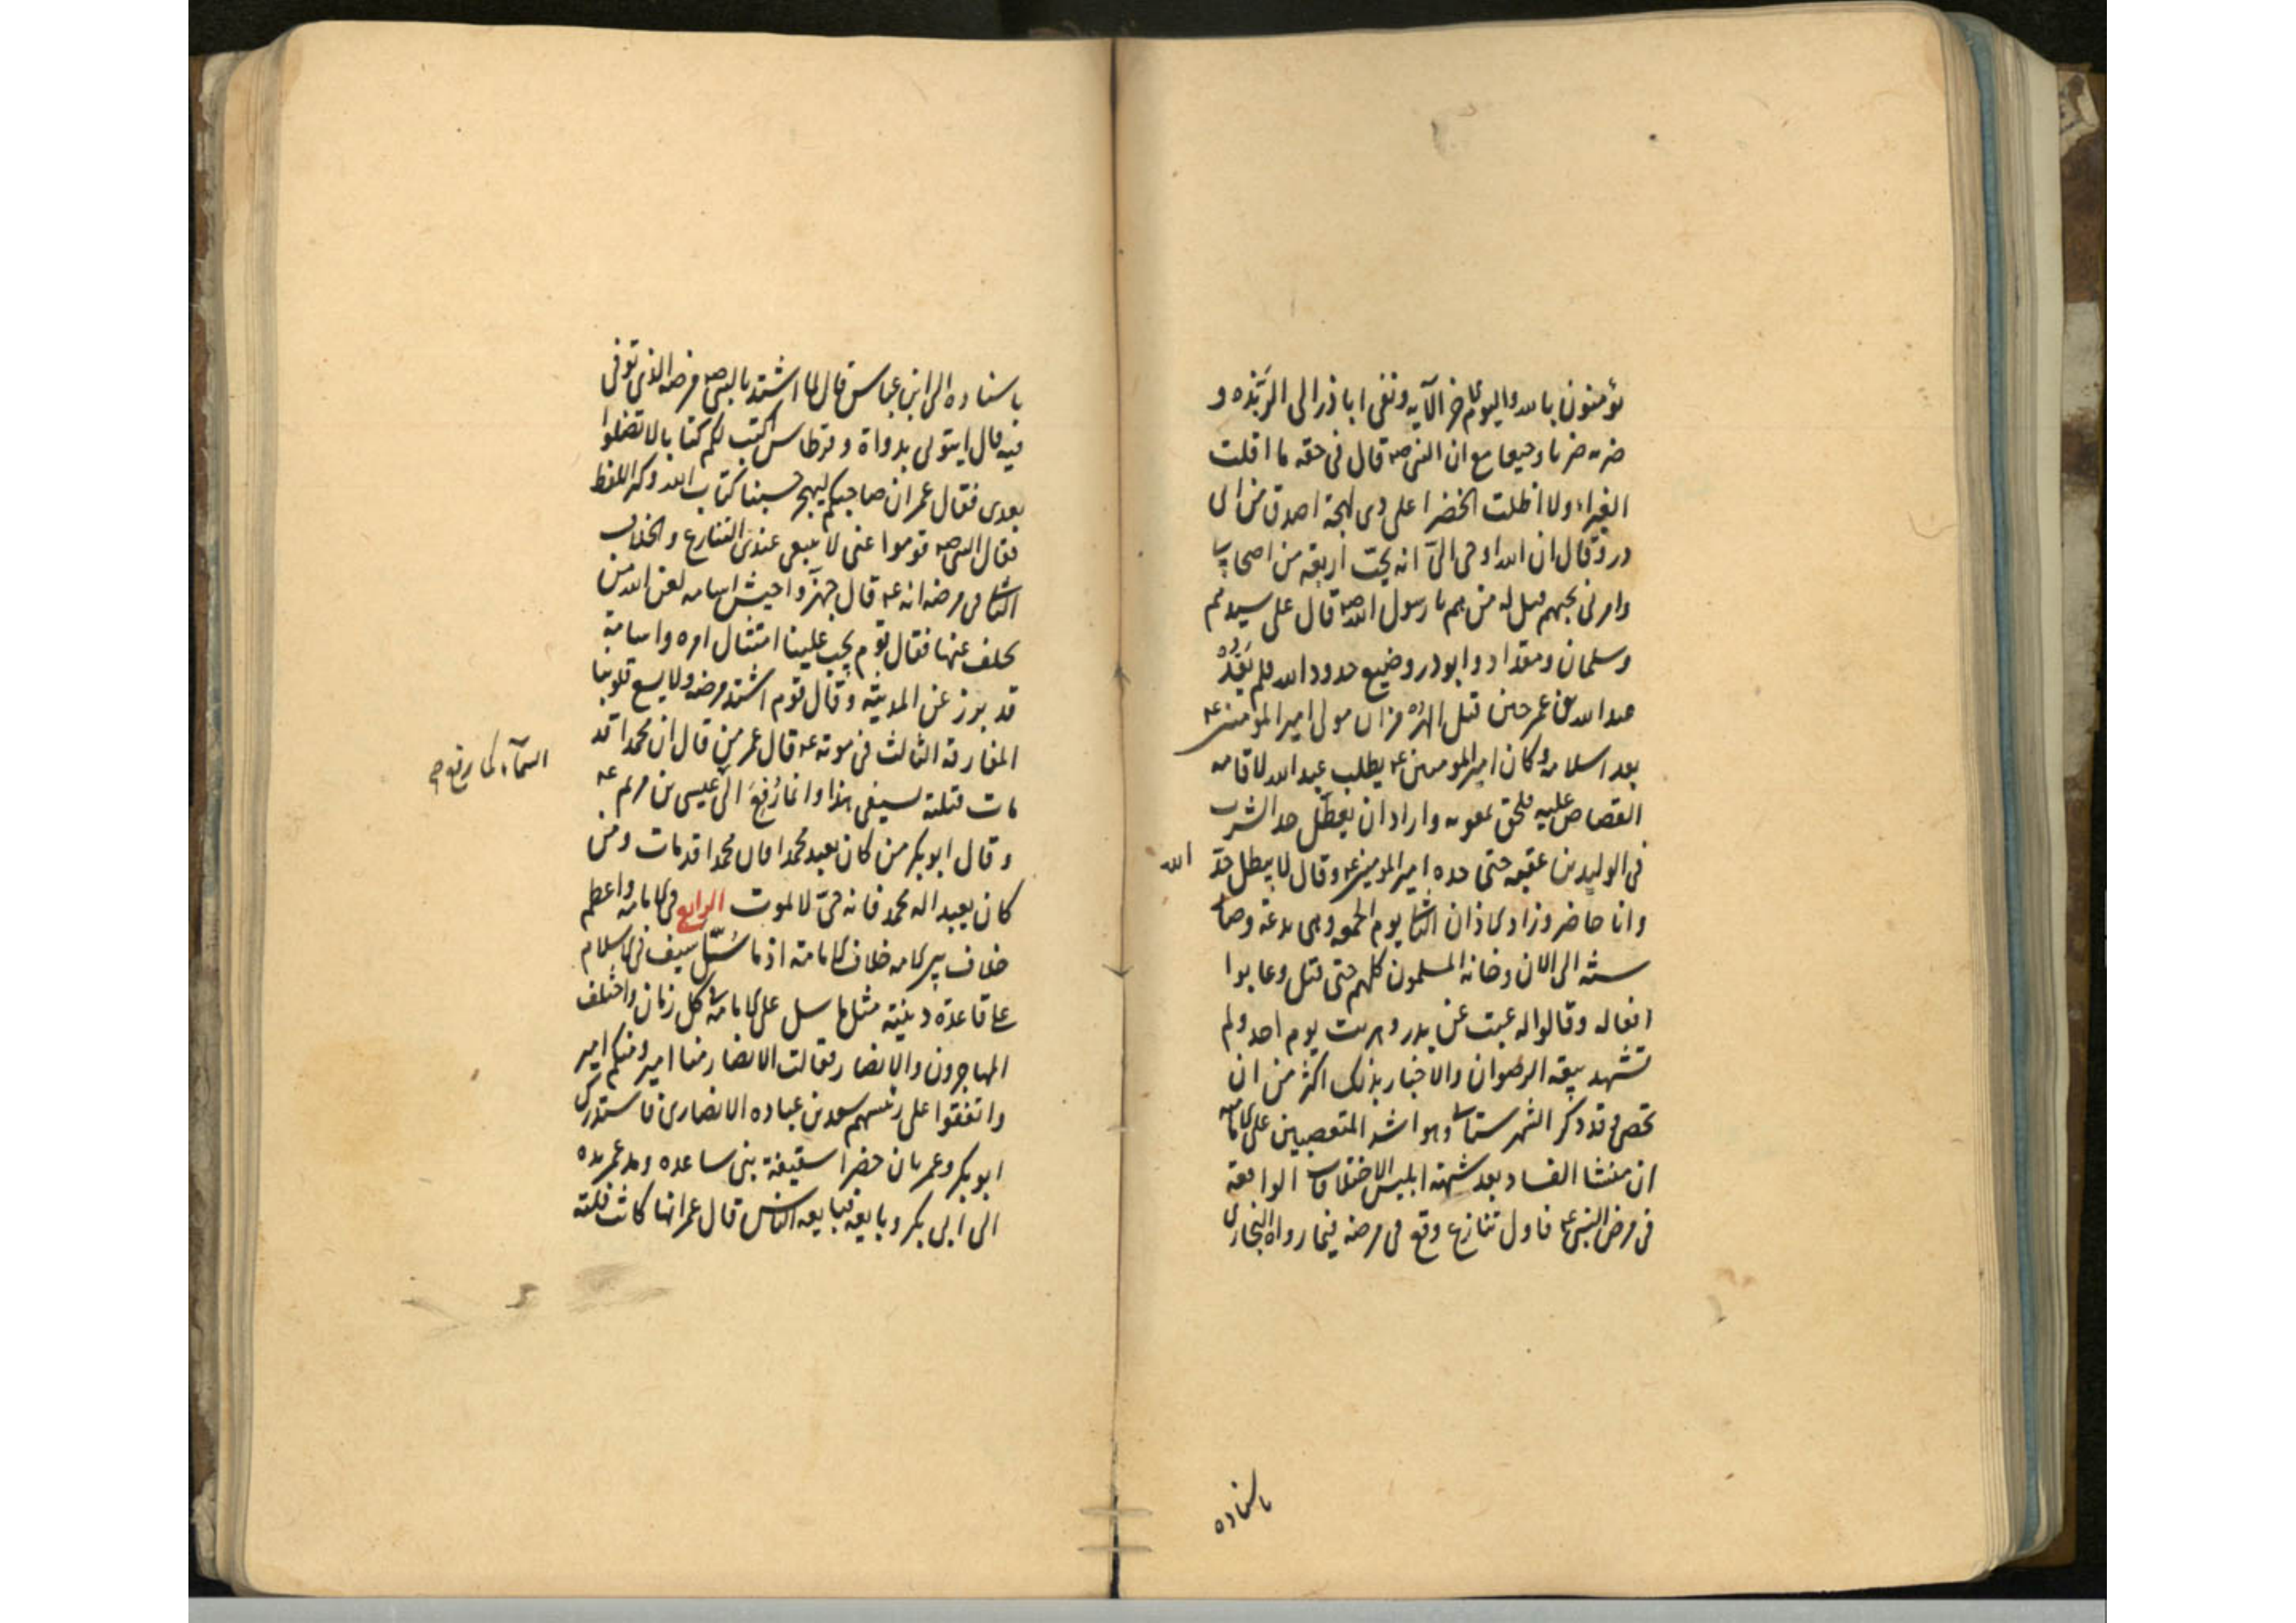 تؤمنون بالله واليوم الاخر الآيه ونفى اباذر الى الرَبَذه و
ضربه ضربا وجيعا مع ان النبى صه قال فى حقه ما اقلت
الغبراء ولا اظلت الخضرا على ذى لهجة اصدق من ابى
ذر وقال ان الله اوحى الىّ انه يحب اربعة من اصحابى
وامرنى بحبهم فقيل له من هم يا رسول الله صه قال على سيدهم
وسلمان ومقداد وابوذر وضيع حدود الله فلم يَقُدْ
عبد الله بن عمر حين قتل الهرمزان مولى امير المؤمنين عه
بعد اسلامه وكان امير المومنين عه يطلب عبد الله لاقامه
القصاص عليه فلحق بمعويه واراد ان يعطّل حد الشرب
فى الوليد بن عقبه حتى حده امير المومنين عه وقال لا يبطل حدّ
الله
وانا حاضر وزاد الاذان الثانى يوم الجمعه وهى بدعة وصار
سنته الى الان وخانه المسلمون كلهم حتى قتل وعابوا
افعاله وقالوا له غبت عن بدر وهربت يوم احد ولم
تشهد بيعة الرضوان والاخبار بذلك اكثر من ان
تحصى وقد ذكر الشهرستانى وهو اشد المتعصبين على الاماميه
ان منشا الفساد بعد شبهة ابليس الاختلافات الواقعة
فى مرض النبى عه فاول تنازع وقع فى مرضه فيما رواه البخارى
باسناده
باسناده الى ابن عباس قال لما اشتد بالنبى صه مرضه الذى توفى
فيه قال ايتونى بدواة وقرطاس اكتب لكم كتابا لا تضلوا
بعدى فقال عمر ان صاحبكم ليهجر حسبنا كتاب الله وكثر اللغط
فقال النبى صه قوموا عنى لا ينبغى عندى التنازع والخلاف
الثانى فى مرضه انه عه قال جهزّوا جيش اسامه لعن الله من
تخلف عنها فقال قوم يجب علينا امتثال امره واسامة
قد برز عن المدينة وقال قوم اشتد مرضه ولا يسع قلوبنا
المفارقة الثالث فى موته عه قال عمر من قال ان محمدا قد
مات قتلته بسيفى هذا وانما رُفِعَ الى عيسى بن مريم عه
السمآء كما رفع
وقال ابو بكر من كان يعبد محمدا فان محمدا قد مات ومن
كان يعبد اله محمد فانه حىّ لا يموت الرابع فى الامامه واعظم
خلاف بين الامه خلاف الامامة اذ ما سُلّ سيف فى الاسلام
على قاعدة دينية مثل ما سل على الامامه فى كل زمان واختلف
المهاجرون والانصار فقالت الانصار منا امير ومنكم امير
واتفقوا على رئيسهم سعد بن عباده الانصارى فاستدرك
ابو بكر وعمر بان حضرا سقيفة بنى ساعده ومد عمر يده
الى ابى بكر وبايعه فبايعه الناس قال عمر انها كانت فلتة